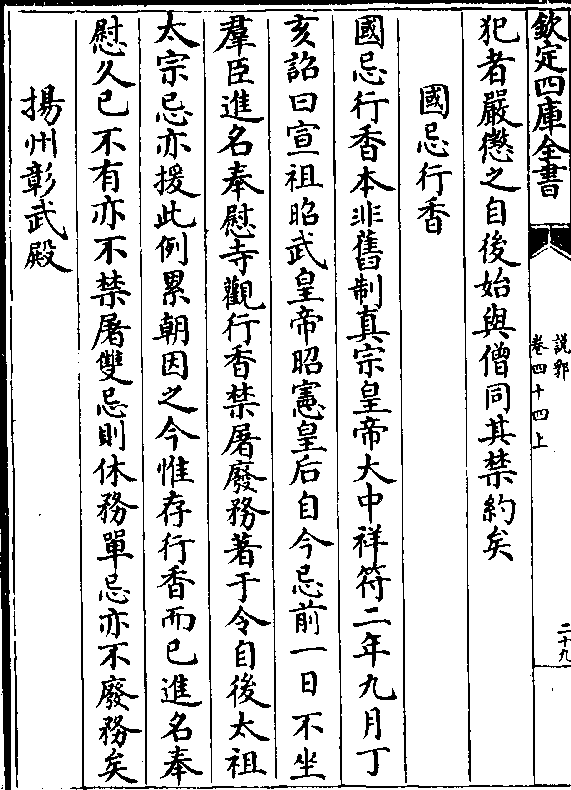 欽定四庫全書
說郛
卷四十四上
二十九
犯者嚴懲之自後始與僧同其禁約矣
國忌行香
國忌行香本非舊制真宗皇帝大中祥符二年九月丁
亥詔曰宣祖昭武皇帝昭憲皇后自今忌前一日不坐
羣臣進名奉慰寺觀行香禁屠廢務著于令自後太祖
太宗忌亦援此例累朝因之今惟存行香而已進名奉
慰久已不有亦不禁屠雙忌則休務單忌亦不廢務矣
揚州彰武殿